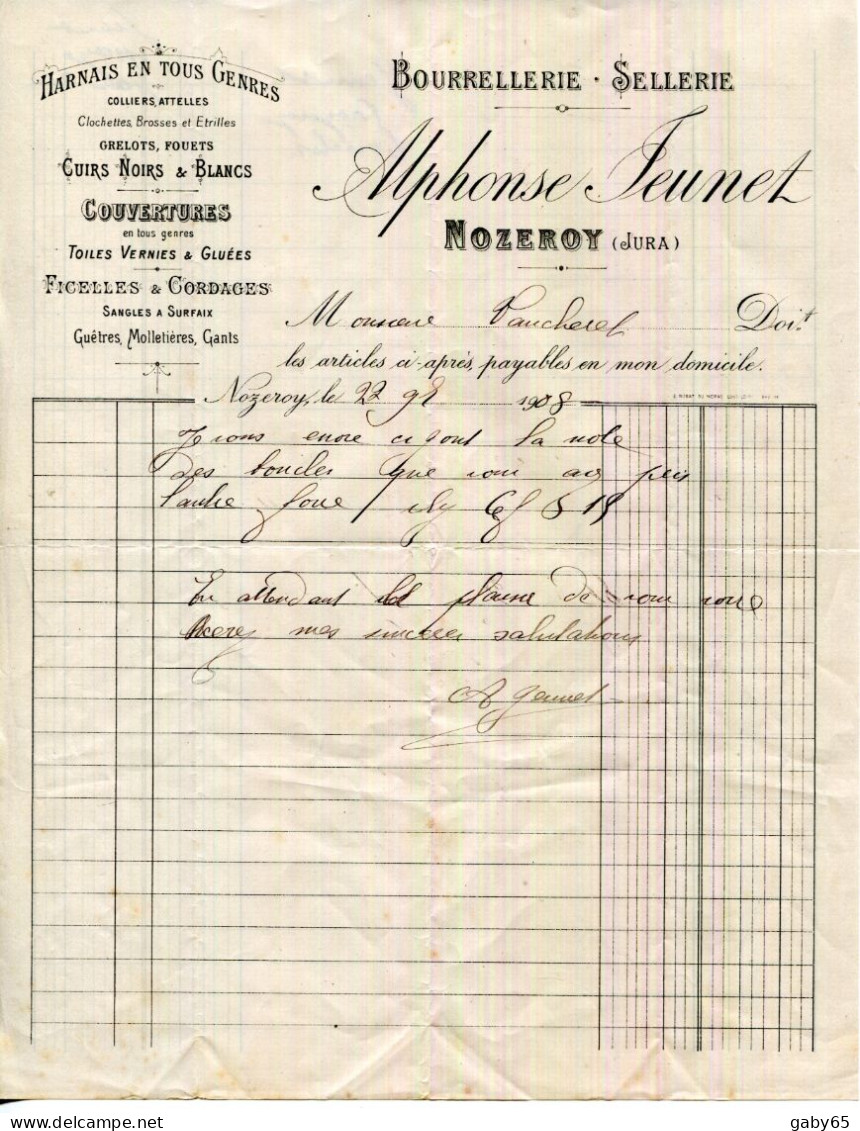 HARNAIS EN TOUS GENRES
COLLIERS, ATTELLES
Clochettes, Brosses et Etrilles
GRELOTS, FOUETS
CUIRS NOIRS & BLANCS
COUVERTURES
en tous genres
TOILES VERNIES & GLUÉES
FICELLES & CORDAGES
SANGLES A SURFAIX
Guêtres, Molletières, Gants
BOURRELLERIE · SELLERIE
Alphonse Jeunet
NOZEROY (JURA)
Monsieur Doit
les articles ci-après, payables en mon domicile.
Nozeroy, le 22 1908
Je vous la note
des boucles que
En attendant de vous
mes sinceres salutations
A Jeunet
delcampe.net
gaby65